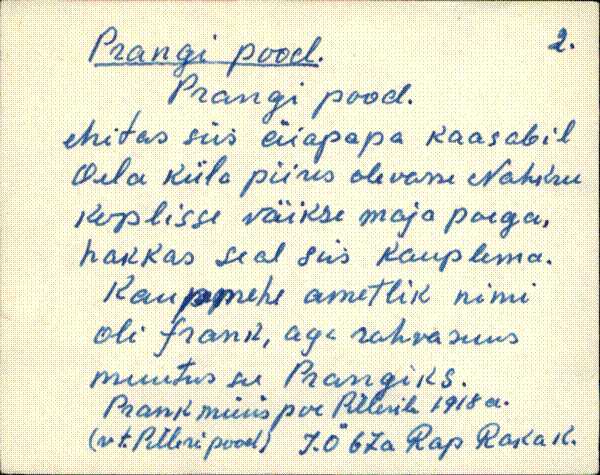 Prangi pood.
2.
Prangi pood.
ehitas siis äiapapa kaasabil
Oela küla piires olevasse Nahksu
koplisse väikse maja poega,
hakkas seal siis kauplema.
Kaupmehe ametlik nimi
oli Frank, aga rahvasuus
muutus see Prangiks.
Prank müüs poe Pilleril 1918 a.
(vt. Pilleri pood) J.Ö 67a Rap Rakak.